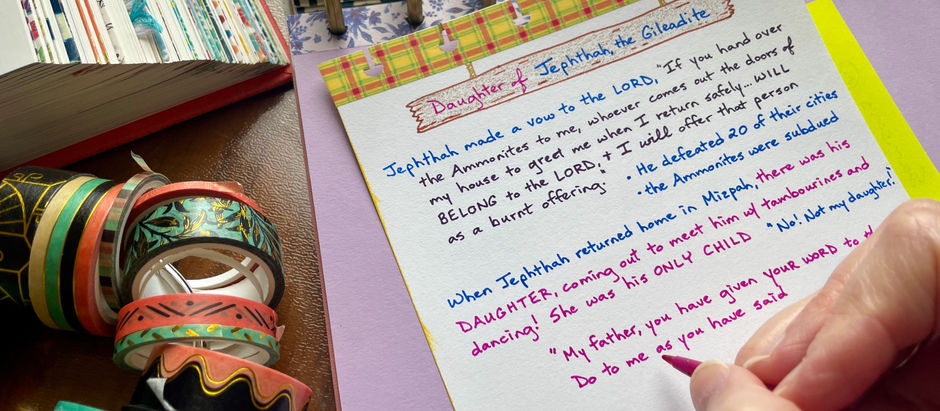 Daughter of Jephthah, the Gileadite
Jephthah made a vow to the LORD, "If you hand over
the Ammonites to me, whoever comes out the doors of
my house to greet me when I return safely... WILL
BELONG to the LORD, + I will offer that person
as a burnt offering."
• He defeated 20 of their cities
• the Ammonites were subdued
When Jephthah returned home in Mizpah, there was his
DAUGHTER, coming out to meet him w/ tambourines and
dancing! She was his ONLY CHILD
"No! Not my daughter!"
"My father, you have given your WORD to
Do to me as you have said